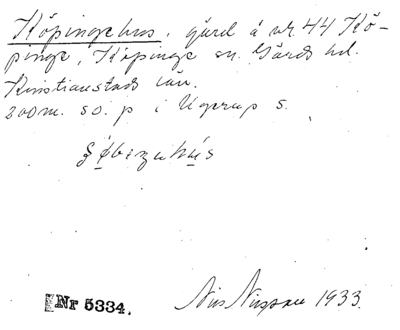 Köpingehus, gård å nr 44 Kö-
pinge, Köpinge sn. Gärds hd.
Kristianstads län.
200 m. so. p i Ugerup s.
Nr 5334.
1933.